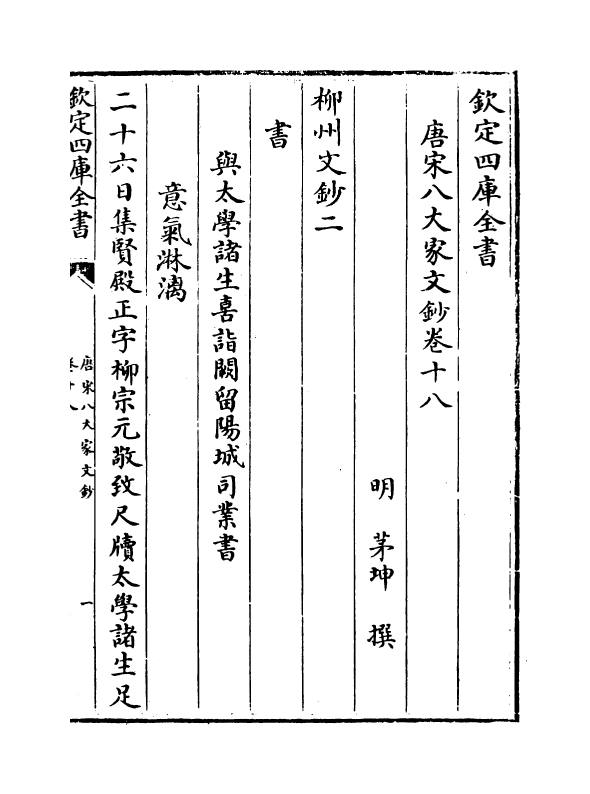 欽定四庫全書
唐宋八大家文鈔卷十八
明 茅坤 撰
柳州文鈔二
書
與太學諸生喜詣闕留陽城司業書
意氣淋漓
二十六日集賢殿正字柳宗元敬致尺牘太學諸生足
欽定四庫全書
唐宋八大家文鈔
卷十八
一